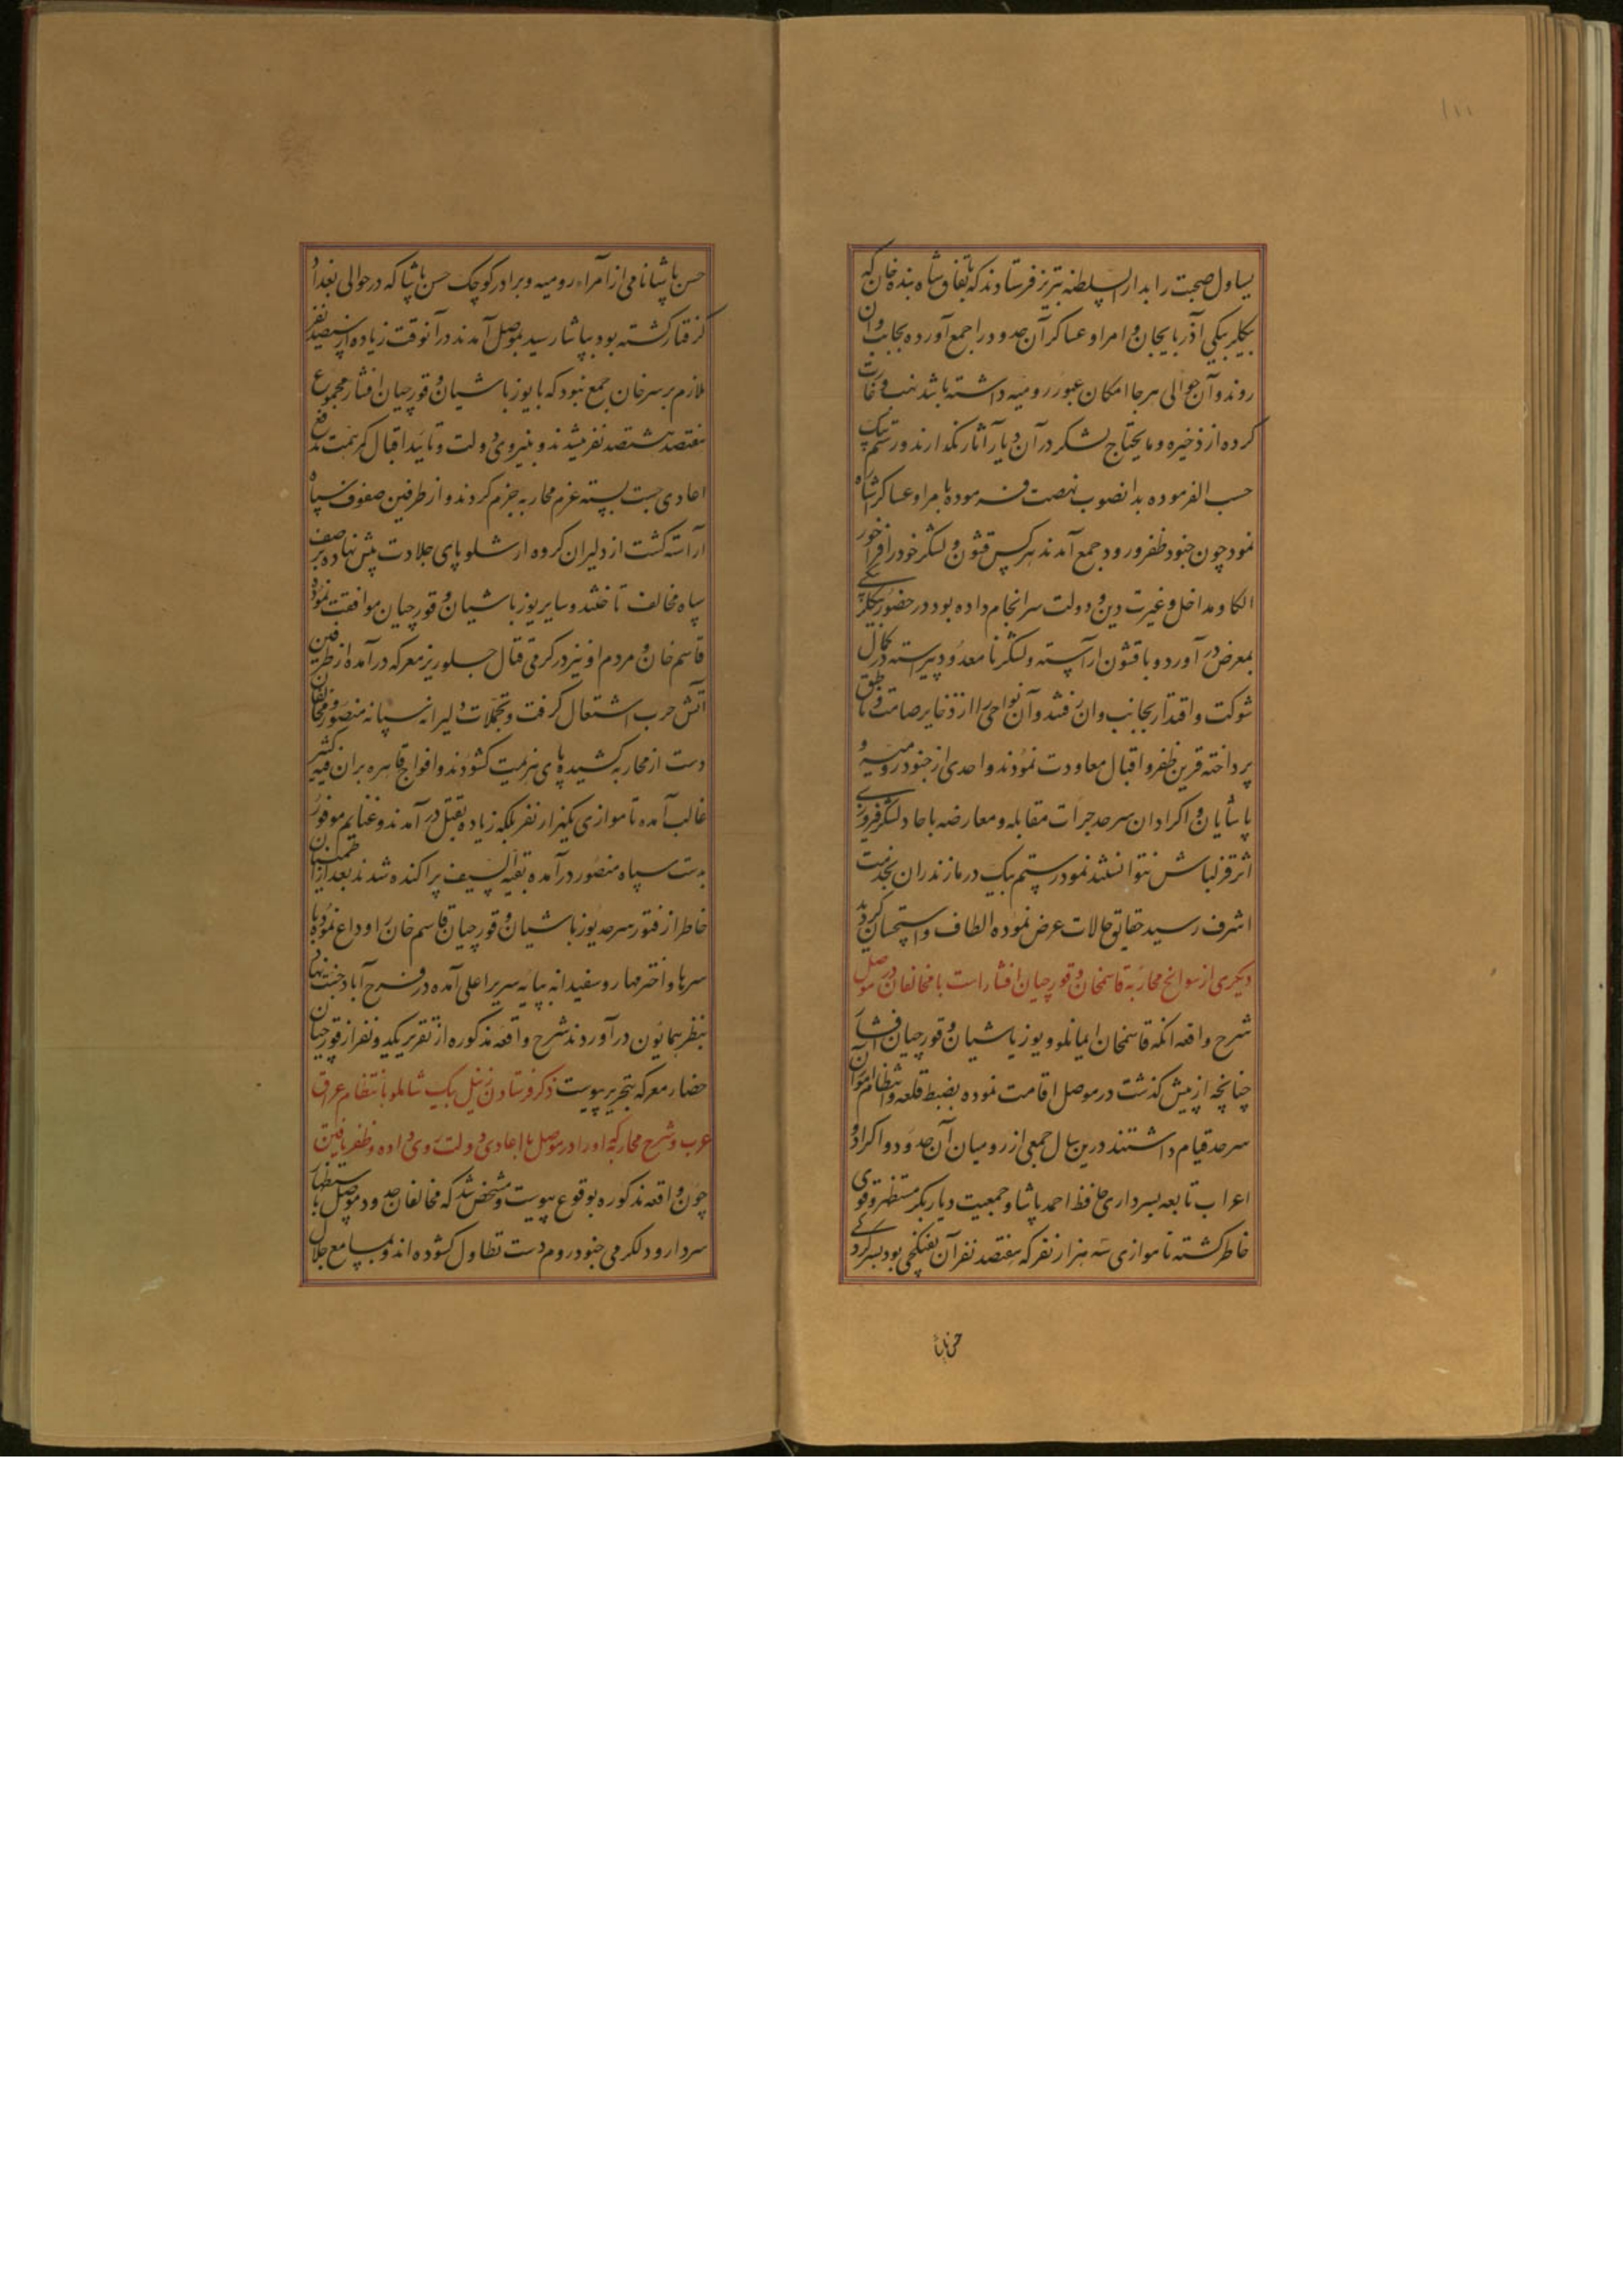 ۱۱۱
یساول صحبت را بدار السلطنه تبریز فرستادند که باتفاق شاه بنده خان که
بیکلربیکی آذربایجان و امرا و عساکر آن حدود را جمع آورده بجانب وان
روند و آن حوالی هر جا امکان عبور رومیه داشته باشد نهب و غارت
کرده از ذخیره و مایحتاج لشکر در آن دیار آثار نکذارند و رستم بیک
حسب الفرموده بدانصوب نهضت فرموده با مرا و عساکر شاه
نمود چون جنود ظفر ورود جمع آمدند هر کس قشون و لشکر خود را فراخور
الکا و مداخل و غیرت دین و دولت سرانجام داده بود در حضور بیکلربیکی
بمعرض در آورد و با قشون آراسته و لشکر نامعدود پیراسته در کمال
شوکت و اقتدار بجانب وان رفتند و آن نواحی را از ذخایر صامت و ناطق
پرداخته قرین ظفر و اقبال معاودت نمودند و احدی از جنود رومیه و
پاشایان و اکرادان سرحد جرات مقابله و معارضه با جاد لشکر فیروزی
اثر قزلباش نتوانستند نمود رستم بیک در مازندران بخدمت
اشرف رسید حقایق حالات عرض نموده الطاف و استحسان کردید
دیکری از سوانح محاربه قاسمخان و قورچیان افشار است با مخالفان در موصل
شرح واقعه انکه قاسمخان ایمانلو و یوزباشیان و قورچیان افشار
چنانچه از پیش کذشت در موصل اقامت نموده بضبط قلعه و انتظام امور آن
سرحد قیام داشتند درین سال جمعی از رومیان آن حدود و اکراد و
اعراب تابعه بسرداری حافظ احمد پاشا و جمعیت دیاربکر مستظهر و قوی
خاطر کشته تا موازی سه هزار نفر که هفتصد نفر آن تفنکچی بود بسرکردکی
حسن پاشا
حسن پاشا نامی از امراء رومیه و برادر کوچک حسن پاشا که در حوالی بغداد
کرفتار کشته بود بپاشا رسید بموصل آمدند در آنوقت زیاده از سیصد نفر
ملازم بر سر خان جمع نبود که با یوزباشیان و قورچیان افشار مجموع
هفتصد هشتصد نفر میشدند و بنیروی دولت و تایید اقبال کمر همت بدفع
اعادی چست بسته عزم محاربه جزم کردند و از طرفین صفوف سپاه
آراسته کشت از دلیران کروه ارشلو پای جلادت پیش نهاده بر صف
سپاه مخالف تاختند و سایر یوزباشیان و قورچیان موافقت نمود
قاسم خان و مردم او نیز در کرمی قتال جلوریز معرکه در آمده از طرفین
آتش حرب اشتعال کرفت و تحملات دلیرانه سپاه منصور مخالفان
دست از محاربه کشیده پای هزیمت کشودند و افواج قاهره بر آن فیه کثیر
غالب آمده تا موازی یکهزار نفر بلکه زیاده بقتل در آمدند و غنایم موفور
بدست سپاه منصور در آمده بقیه السیف پراکنده شدند بعد از اطمینان
خاطر از فتور سرحد یوزباشیان و قورچیان قاسم خان را وداع نموده با
سرها و اختر مها روسفیدانه بپایه سریر اعلی آمده در فرح آباد جنت نهاد
بنظر همایون در آوردند شرح واقعه مذکوره از تقریر یکد و نفر از قورچیان
حضار معرکه بتحریر پیوست ذکر فرستادن زینل بیک شاملو بانتظام عراق
عرب و شرح محاربه که او را در موصل با اعادی دولت روی داده و ظفر یافتن
چون واقعه مذکوره بوقوع پیوست و مشخص شد که مخالفان حدود موصل باستظهار
سردار و دلکرمی جنود روم دست تطاول کشوده اند و بمسامع جلال